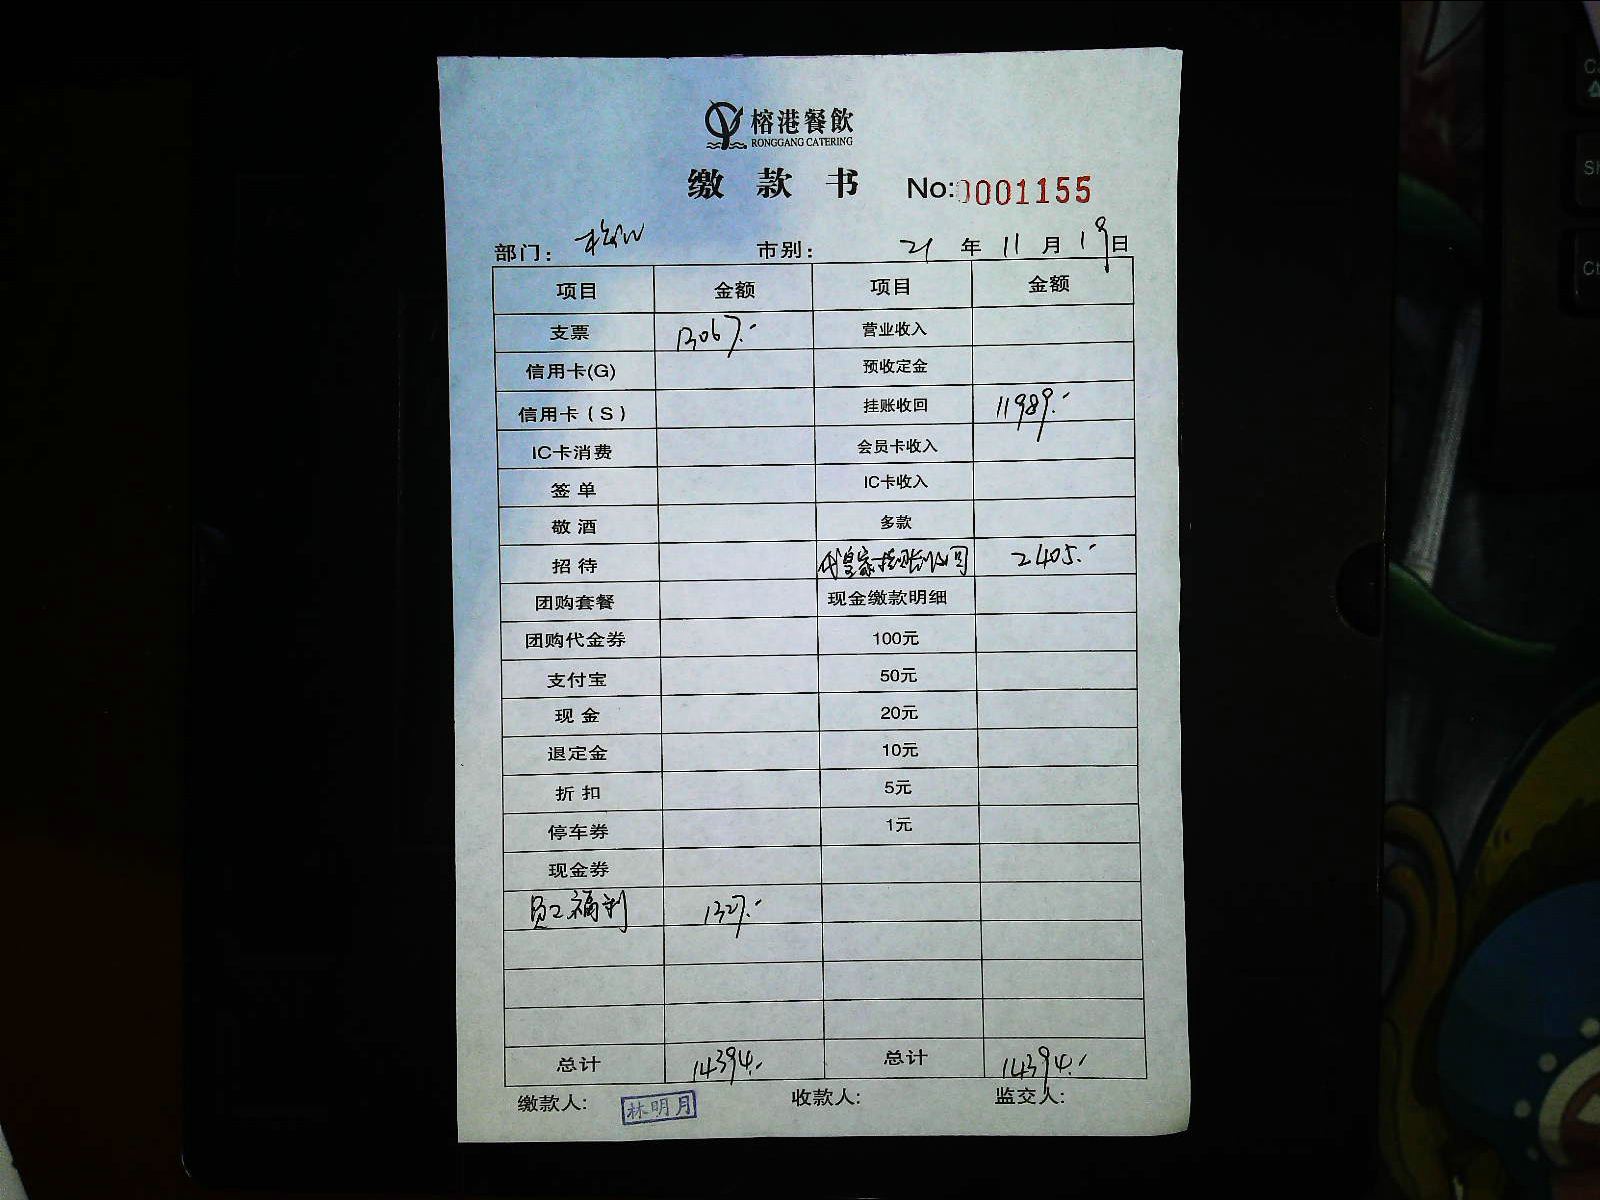 榕港餐飲
RONGGANG CATERING
缴款书 No:0001155
部门: 市别: 21年11月19日
项目 金额 项目 金额
支票 13067.- 营业收入
信用卡(G) 预收定金
信用卡(S) 挂账收回 11989.-
IC卡消费 会员卡收入
签单 IC卡收入
敬酒 多款
招待 代皇家挂账收回 2405.-
团购套餐 现金缴款明细
团购代金券 100元
支付宝 50元
现金 20元
退定金 10元
折扣 5元
停车券 1元
现金券
员工福利 1327.-
总计 14394.- 总计 14394.-
缴款人: 林明月 收款人: 监交人: